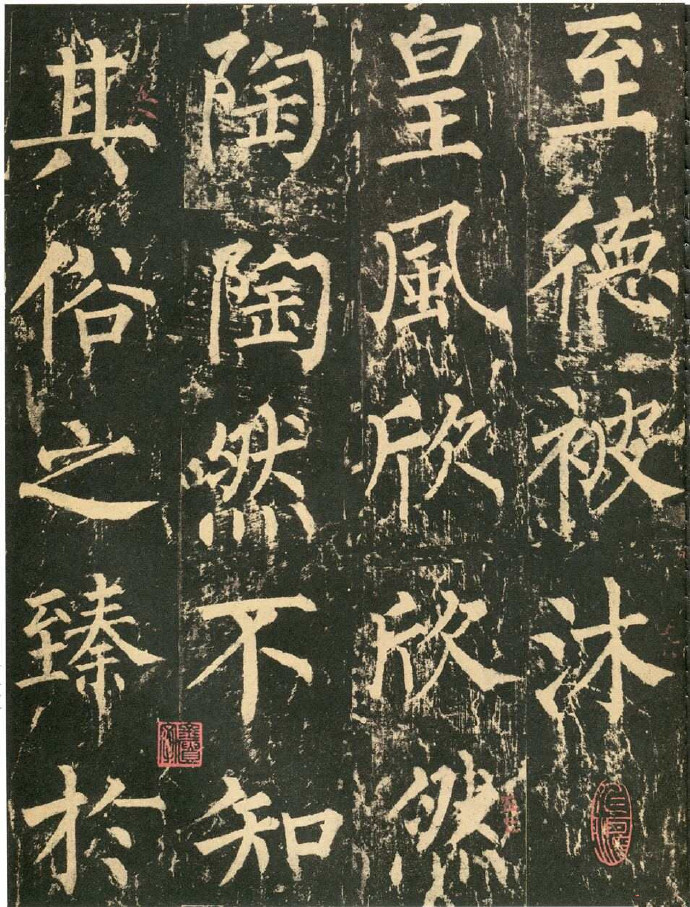 至德被沐
皇風欣欣然
陶陶然不知
其俗之臻於